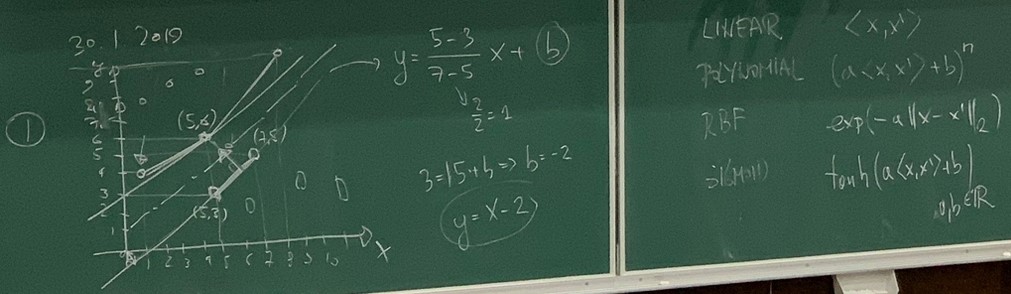 30. 1 2019
y
①
9
8
7
6
5
4
3
2
1
(5,6)
(7,5)
(5,3)
1 2 3 4 5 6 7 8 9 10
x
y = \frac{5-3}{7-5} x + b
\frac{2}{2} = 1
3 = 1·5 + b => b = -2
y = x - 2
LINEAR <x, x'>
POLYNOMIAL (a<x, x'> + b)^n
RBF exp(-a ||x - x'||_2)
tanh(a<x, x'> + b)
a, b ∈ ℝ